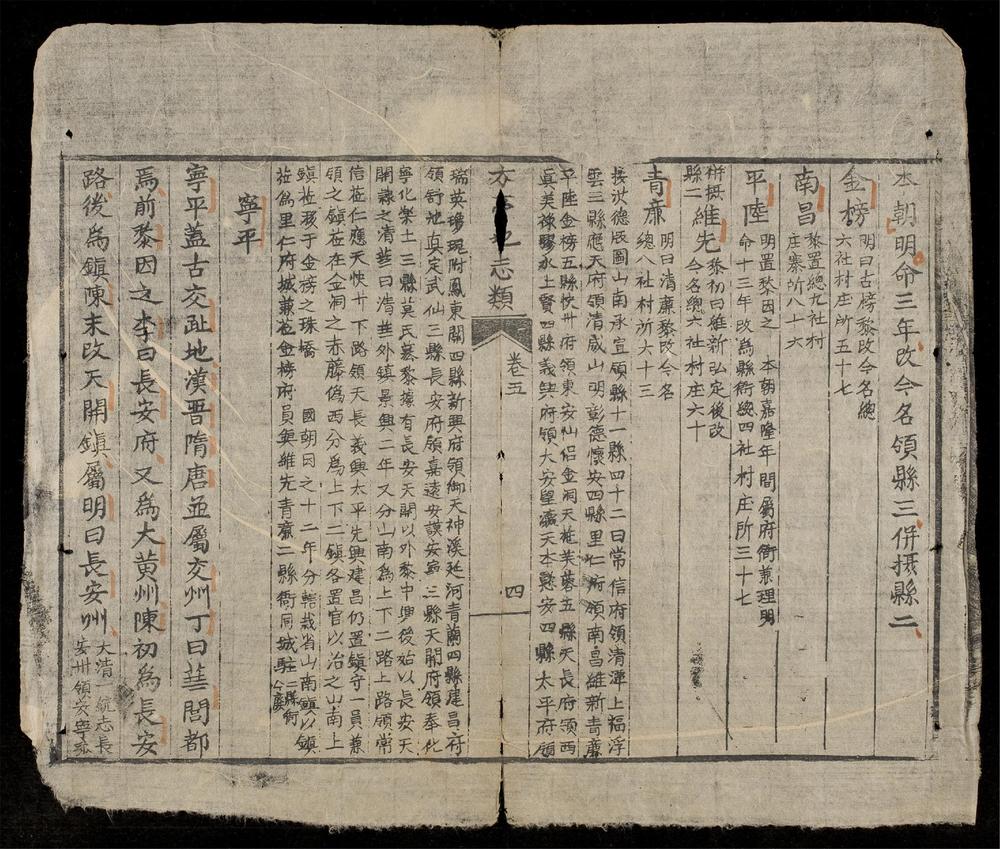 本朝明命三年改今名領縣三併摂縣二
金榜 明曰古榜黎改今名總
六社村庄所五十七
南昌 黎置總九社村
庄寨所八十六
平陸 明置黎因之 本朝嘉隆年間屬府衙兼理明
命十三年改為縣衙總四社村庄所三十七
併摂縣二
維先 黎初曰維新弘定後改
今名總六社村庄六十
青廉 明曰清廉黎改今名
總八社村所六十三
按洪德版圖山南承宣領縣十一縣四十二曰常信府領清潭上福浮
雲三縣應天府領清威山明彰德懷安四縣里仁府領南昌維新青廉
平陸金榜五縣快州府領東安仙侶金洞天施芙蓉五縣天長府領西
真美祿膠水上賢四縣義興府領大安望瀛天本懿安四縣太平府領
方亭地志類 卷五 四
瑞英瓊瑰附鳳東關四縣新興府領御天神溪延河青蘭四縣建昌府
領舒池真定武仙三縣長安府領嘉遠安謨安寧三縣天關府領奉化
寧化樂土三縣莫氏纂黎據有長安天關以外黎中興後始以長安天
關隸之清華曰清華外鎮景興二年又分山南為上下二路上路領常
信莅仁應天快州下路領天長義興太平先興建昌仍置鎮守一員兼
領之鎮莅在金洞之赤藤偽西分為上下二鎮各置官以治之山南上
鎮莅移于金榜之珠橋 國朝因之十二年分轄裁省山南鎮以鎮
莅為里仁府城兼莅金榜府員與維先青廉二縣衙同城
寧平
寧平蓋古交趾地漢晋隋唐並屬交州丁曰華閭都
焉前黎因之李曰長安府又為大黃州陳初為長安
路後為鎮陳末改天關鎮屬明曰長安州 大清一統志長
安州領安寧